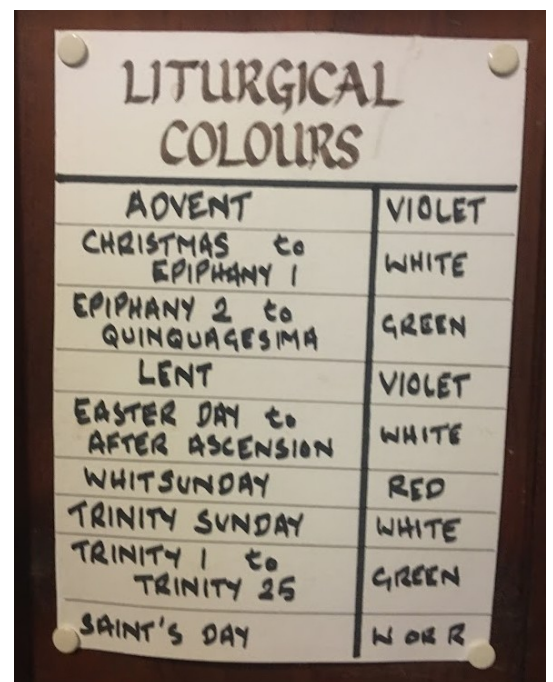 LITURGICAL
COLOURS
ADVENT VIOLET
CHRISTMAS to
EPIPHANY 1 WHITE
EPIPHANY 2 to
QUINQUAGESIMA GREEN
LENT VIOLET
EASTER DAY to
AFTER ASCENSION WHITE
WHITSUNDAY RED
TRINITY SUNDAY WHITE
TRINITY 1 to
TRINITY 25 GREEN
SAINT'S DAY W OR R